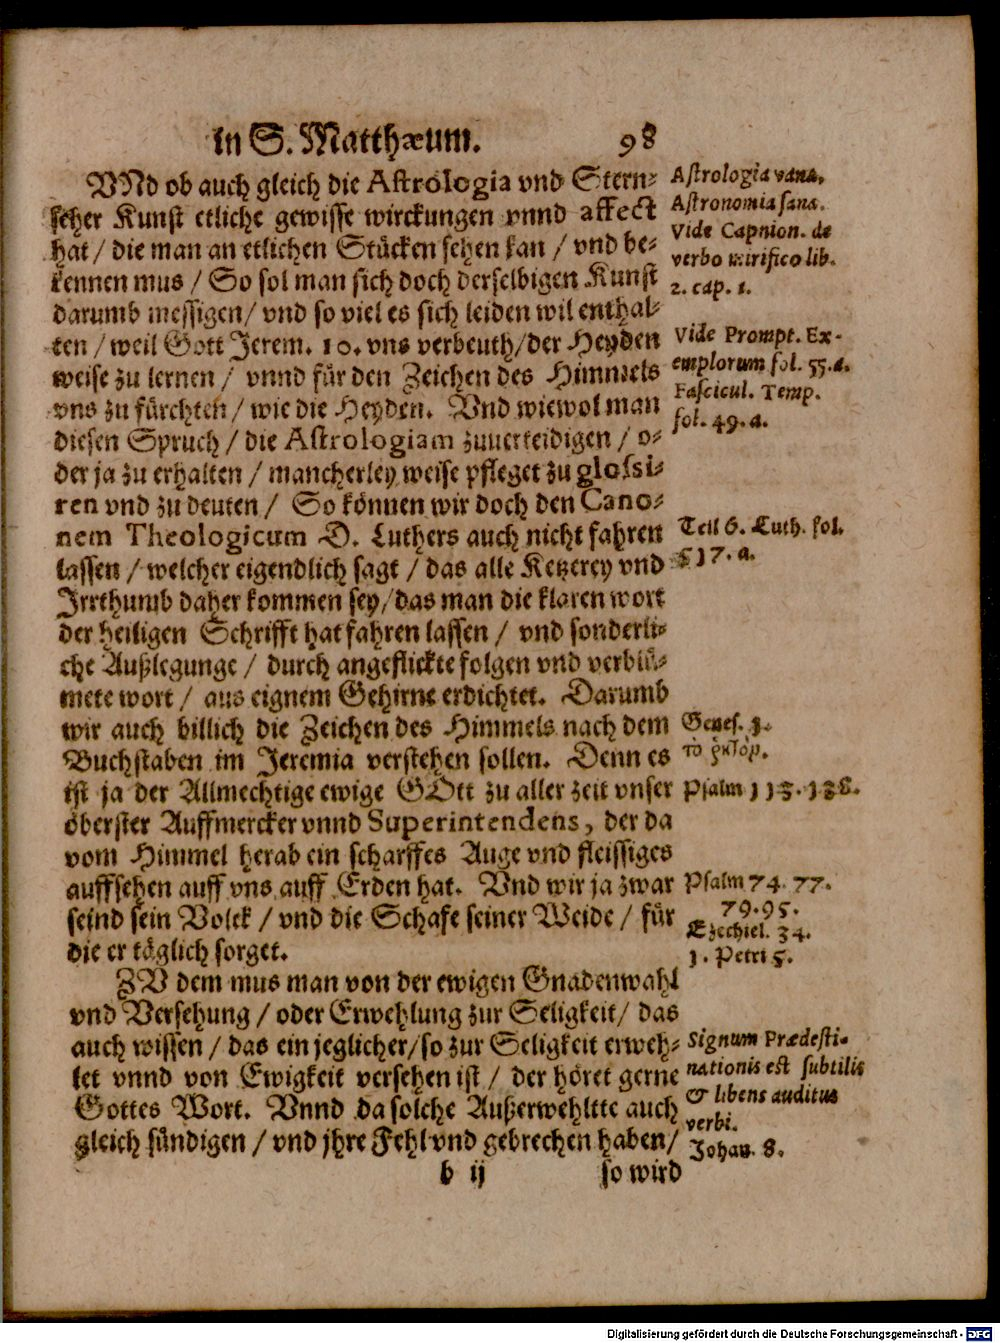 in S. Matthæum. 98
VNd ob auch gleich die Astrologia vnd Stern-
seher Kunst etliche gewisse wirckungen vnnd affect
hat / die man an etlichen Stücken sehen kan / vnd be-
kennen mus / So sol man sich doch derselbigen Kunst
darumb messigen / vnd so viel es sich leiden wil enthal-
ten / weil Gott Jerem. 10. vns verbeuth / der Heyden
weise zu lernen / vnnd für den Zeichen des Himmels
vns zu fürchten / wie die Heyden. Vnd wiewol man
diesen Spruch / die Astrologiam zuuerteidigen / o-
der ja zu erhalten / mancherley weise pfleget zu glossi-
ren vnd zu deuten / So können wir doch den Cano-
nem Theologicum D. Luthers auch nicht fahren
lassen / welcher eigendlich sagt / das alle Ketzerey vnd
Jrrthumb daher kommen sey / das man die klaren wort
der heiligen Schrifft hat fahren lassen / vnd sonderli-
che Außlegunge / durch angeflickte folgen vnd verblü-
mete wort / aus eignem Gehirne erdichtet. Darumb
wir auch billich die Zeichen des Himmels nach dem
Buchstaben im Jeremia verstehen sollen. Denn es
ist ja der Allmechtige ewige GOtt zu aller zeit vnser
öberster Auffmercker vnnd Superintendens, der da
vom Himmel herab ein scharffes Auge vnd fleissiges
auffsehen auff vns auff Erden hat. Vnd wir ja zwar
seind sein Volck / vnd die Schafe seiner Weide / für
die er täglich sorget.
ZV dem mus man von der ewigen Gnadenwahl
vnd Versehung / oder Erwehlung zur Seligkeit / das
auch wissen / das ein jeglicher / so zur Seligkeit erweh-
let vnnd von Ewigkeit versehen ist / der höret gerne
Gottes Wort. Vnnd da solche Außerwehltte auch
gleich sündigen / vnd jhre Fehl vnd gebrechen haben /
b ij so wird
Astrologia vana,
Astronomia sana.
Vide Capnion. de
verbo mirifico lib.
2. cap. 1.
Vide Prompt. Ex-
emplorum fol. 55. a.
Fascicul. Temp.
fol. 49. a.
Teil 6. Luth. fol.
517. a.
Genes. 3.
τὸ ῥητόρ.
Psalm 113. 138.
Psalm 74. 77.
79. 95.
Ezechiel. 34.
1. Petri 5.
Signum Prædesti-
nationis est subtilis
& libens auditus
verbi.
Johan. 8.
Digitalisierung gefördert durch die Deutsche Forschungsgemeinschaft - DFG